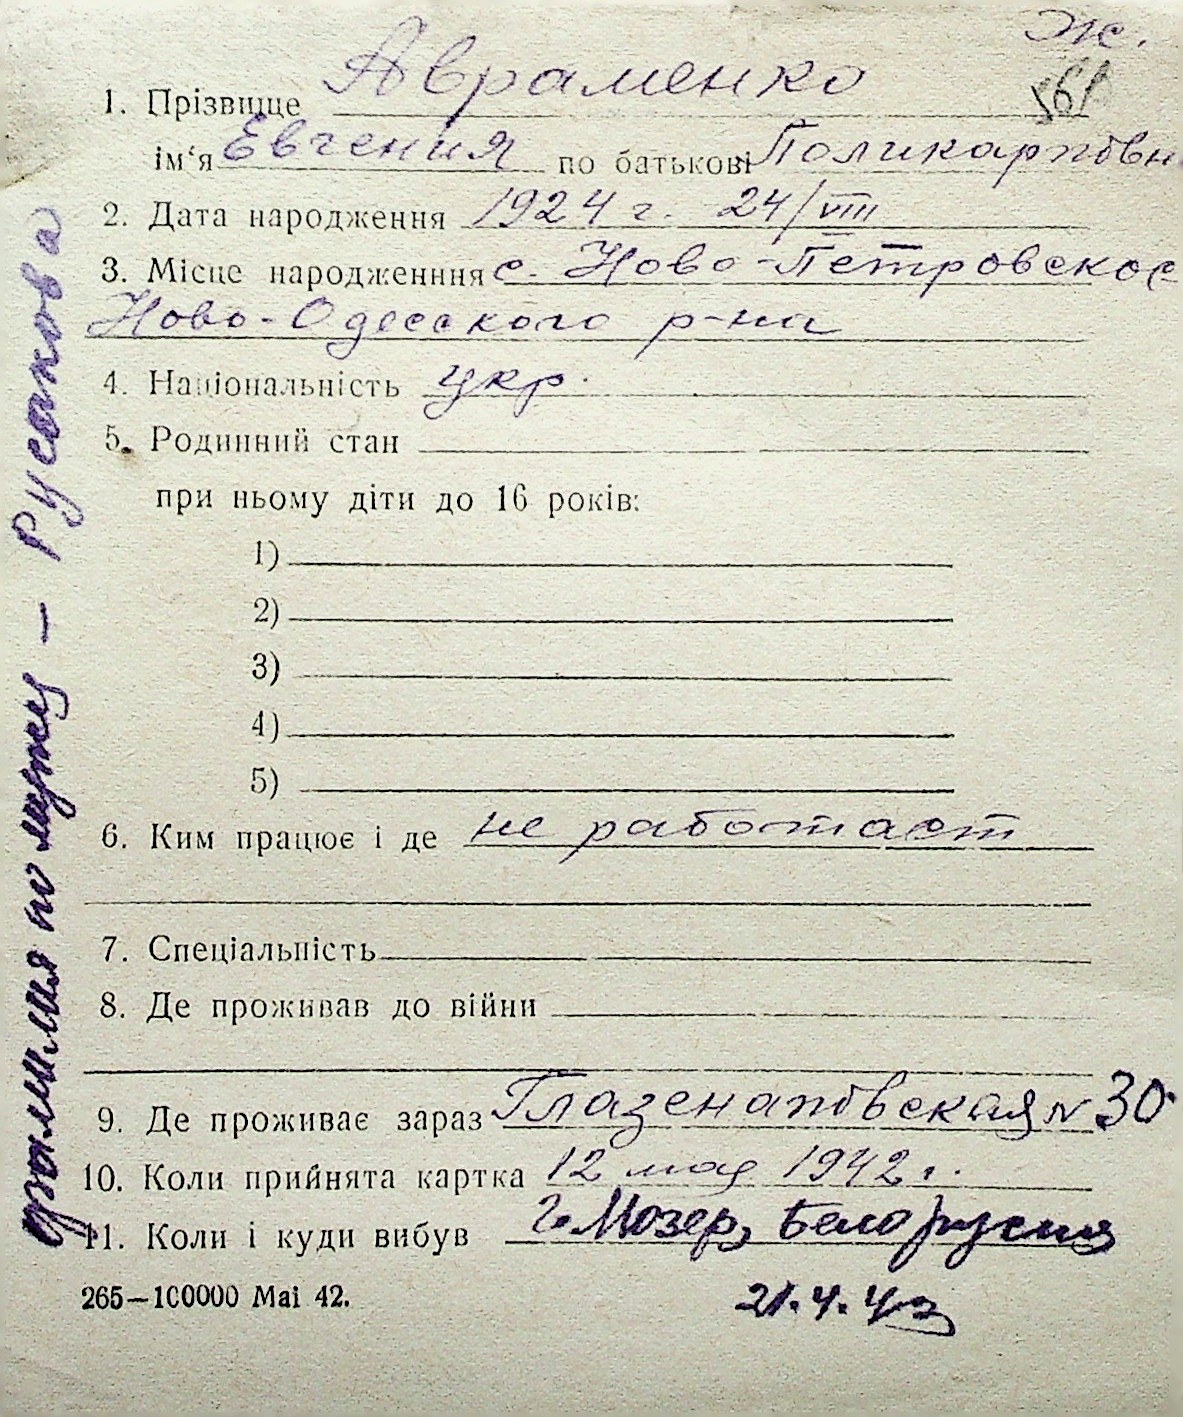 Ж.
561
1. Прізвище Авраменко
ім'я Евгения по батькові Поликарповн
2. Дата народження 1924 г. 24/VIII
3. Місце народженння с. Ново-Петровское
Ново-Одесского р-на
4. Національність укр.
5. Родинний стан
при ньому діти до 16 років:
1)
2)
3)
4)
5)
6. Ким працює і де не работает
7. Спеціальність
8. Де проживав до війни
9. Де проживає зараз Глазенаповская № 30
10. Коли прийнята картка 12 мая 1942 г.
11. Коли і куди вибув г. Мозер, Белоруссия
21.4.43
265—100000 Mai 42.
фамилия по мужу — Русакова